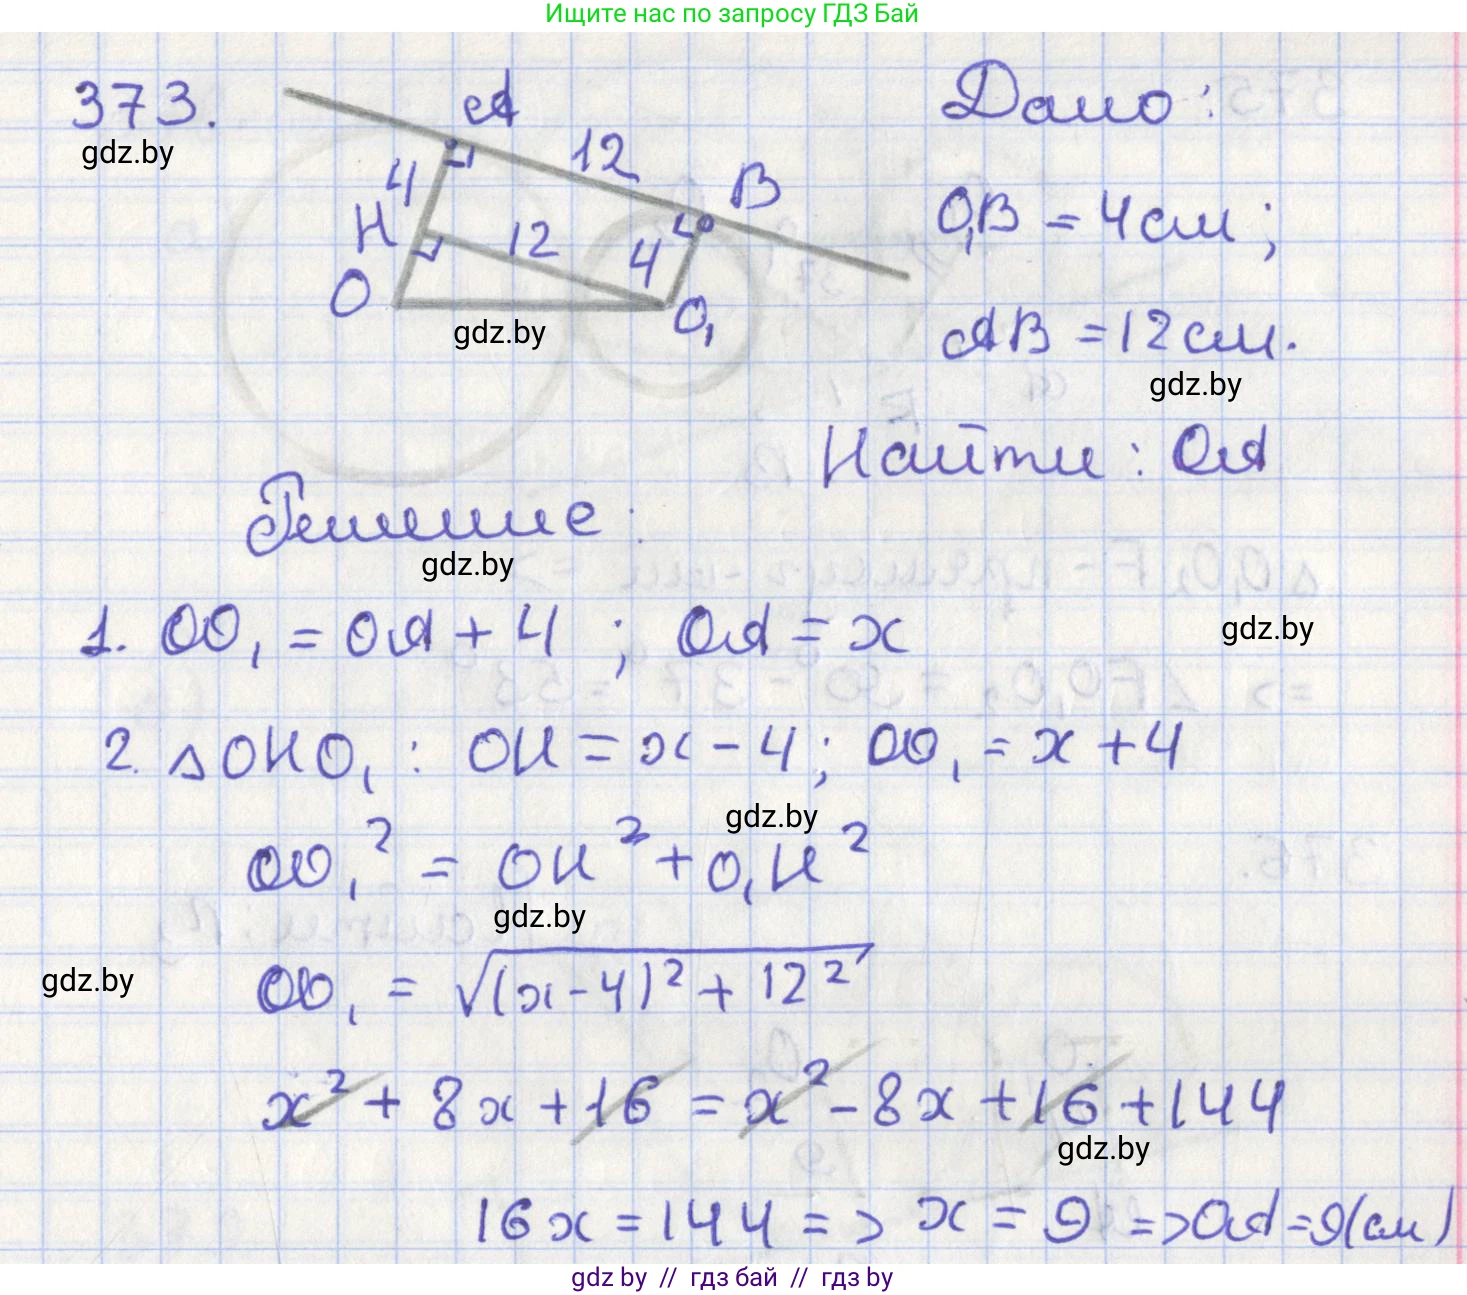 Ищите нас по запросу ГДЗ Бай
373.
gdz.by
A
12
B
4
H
12
4
O
O₁
gdz.by
Дано:
O₁B = 4 см;
AB = 12 см.
gdz.by
Найти: OA
Решение:
gdz.by
1. OO₁ = OA + 4 ; OA = x
gdz.by
2. △OHO₁ : OH = x - 4 ; OO₁ = x + 4
gdz.by
OO₁² = OH² + O₁H²
gdz.by
gdz.by
OO₁ = √(x-4)² + 12²
x² + 8x + 16 = x² - 8x + 16 + 144
gdz.by
16x = 144 => x = 9 => OA = 9(см)
gdz by // гдз бай // гдз by